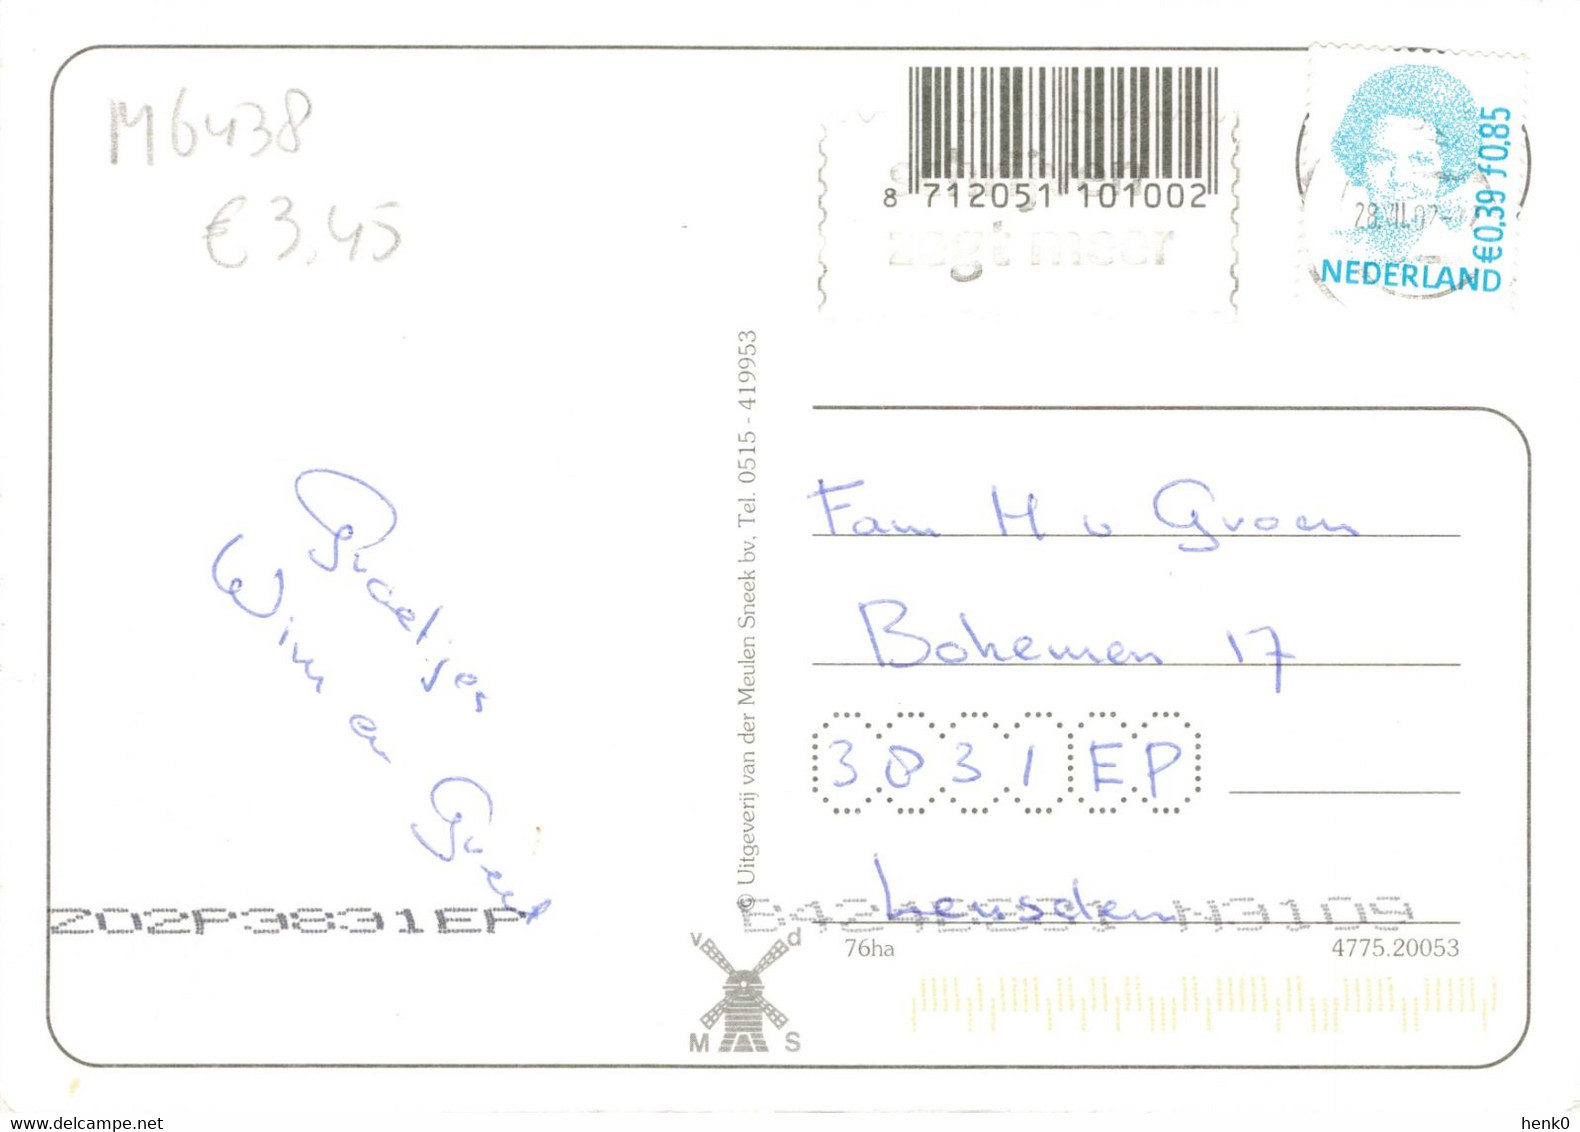 M6438
€3,45
8 712051 101002
schrijven
zegt meer
NEDERLAND
€0,39 f0,85
Groetjes
Wim en Greet
© Uitgeverij van der Meulen Sneek bv, Tel. 0515 - 419953
Fam H v Groen
Bohemen 17
3831 EP
Leusden
ZO2P3831EP
76ha
4775.20053
v d
M S
henk0